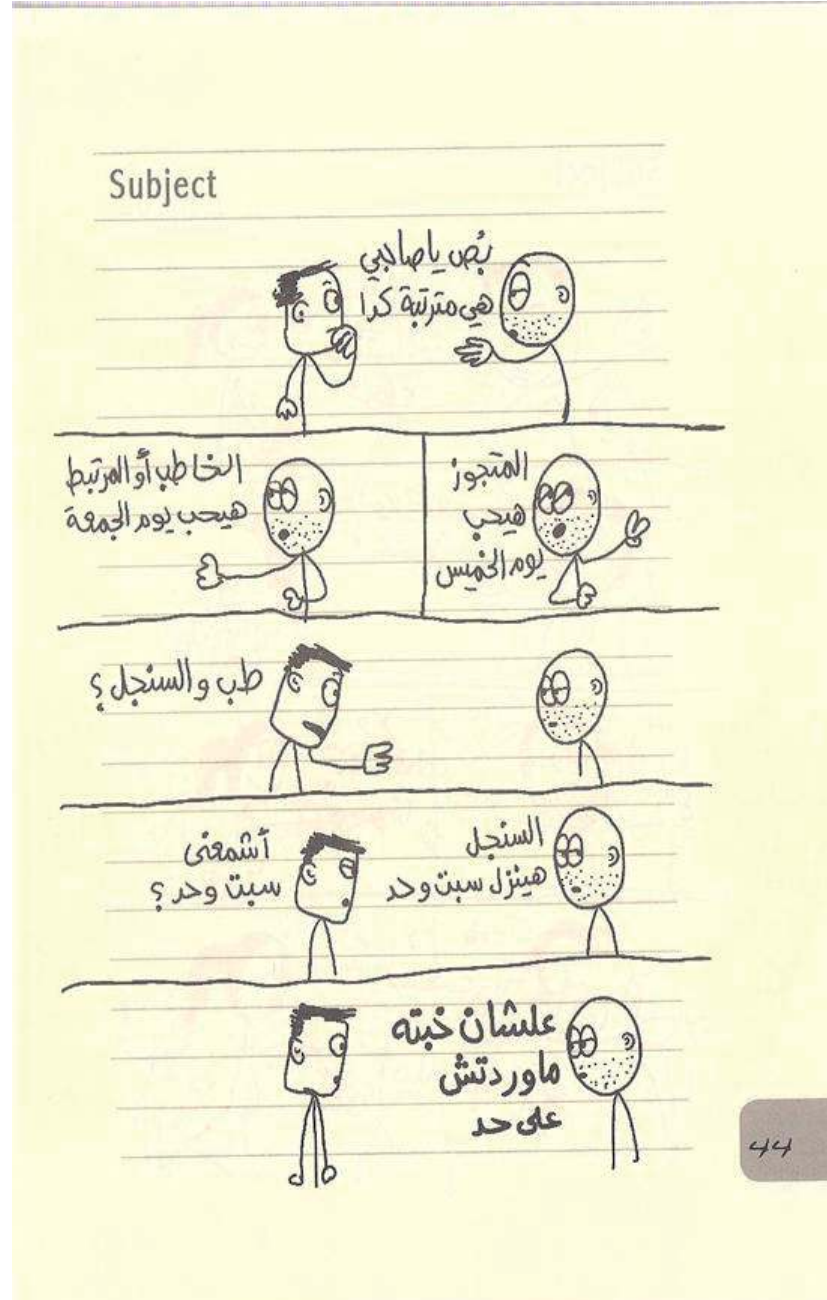 Subject
بُص يا صاحبي
هي مترتبة كدا
المتجوز
هيحب
يوم الخميس
الخاطب أو المرتبط
هيحب يوم الجمعة
طب والسنجل؟
السنجل
هينزل سبت وحد
أشمعنى
سبت وحد؟
علشان خبته
ماوردتش
على حد
44